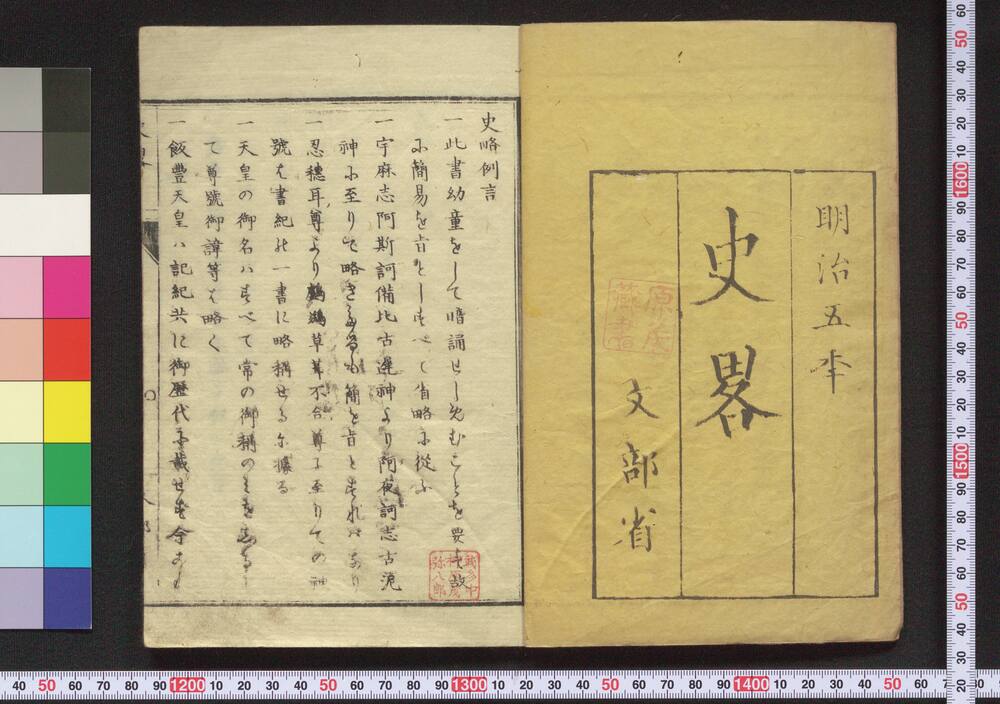 明治五年
史畧
文部省
史略例言
一此書幼童をして暗誦せしめむことを要す故
に簡易を旨としすべて省略に從ふ
一宇麻志阿斯訶備比古遲神より阿夜訶志古泥
神に至りて略きたるも簡を旨とすればなり
一忍穗耳尊より鸕鷀草葺不合尊に至りての神
號は書紀の一書に略稱せるに據る
一天皇の御名ハすべて常の御稱のみを
て尊號御諱等は略く
一飯豐天皇ハ記紀共に御歴代に載せず今